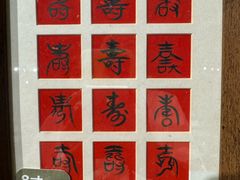 壽 壽 壽
壽 壽 壽
壽 壽 壽
壽 壽 壽